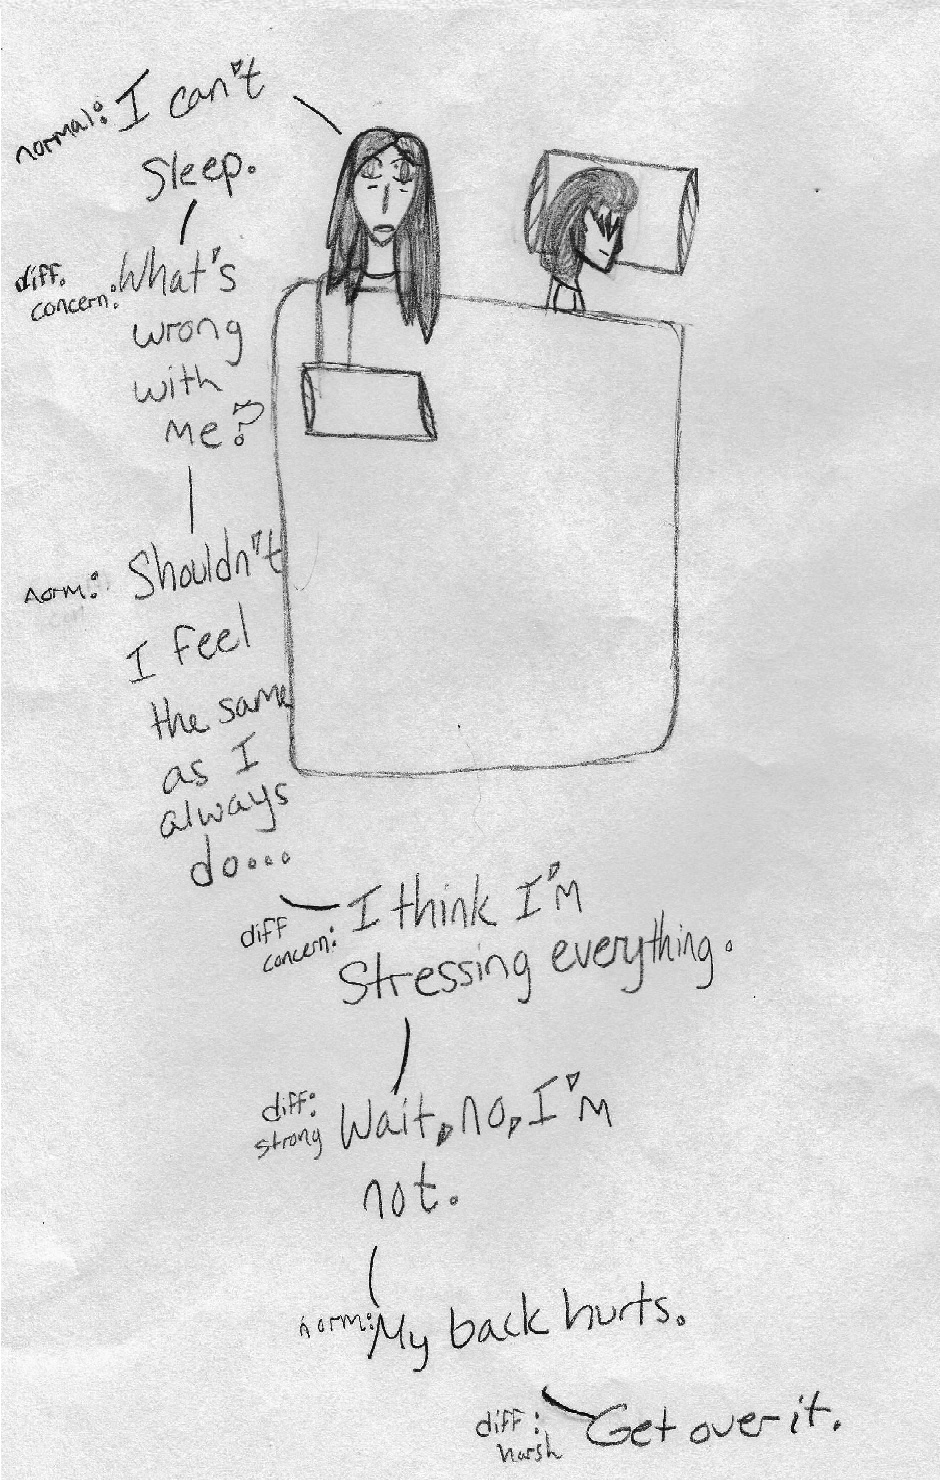 normal: I can't
Sleep.
diff. concern: What's
wrong
with
me?
norm: Shouldn't
I feel
the same
as I
always
do...
diff concern: I think I'm
Stressing everything.
diff: strong Wait, no, I'm
not.
norm: My back hurts.
diff: harsh Get over it.